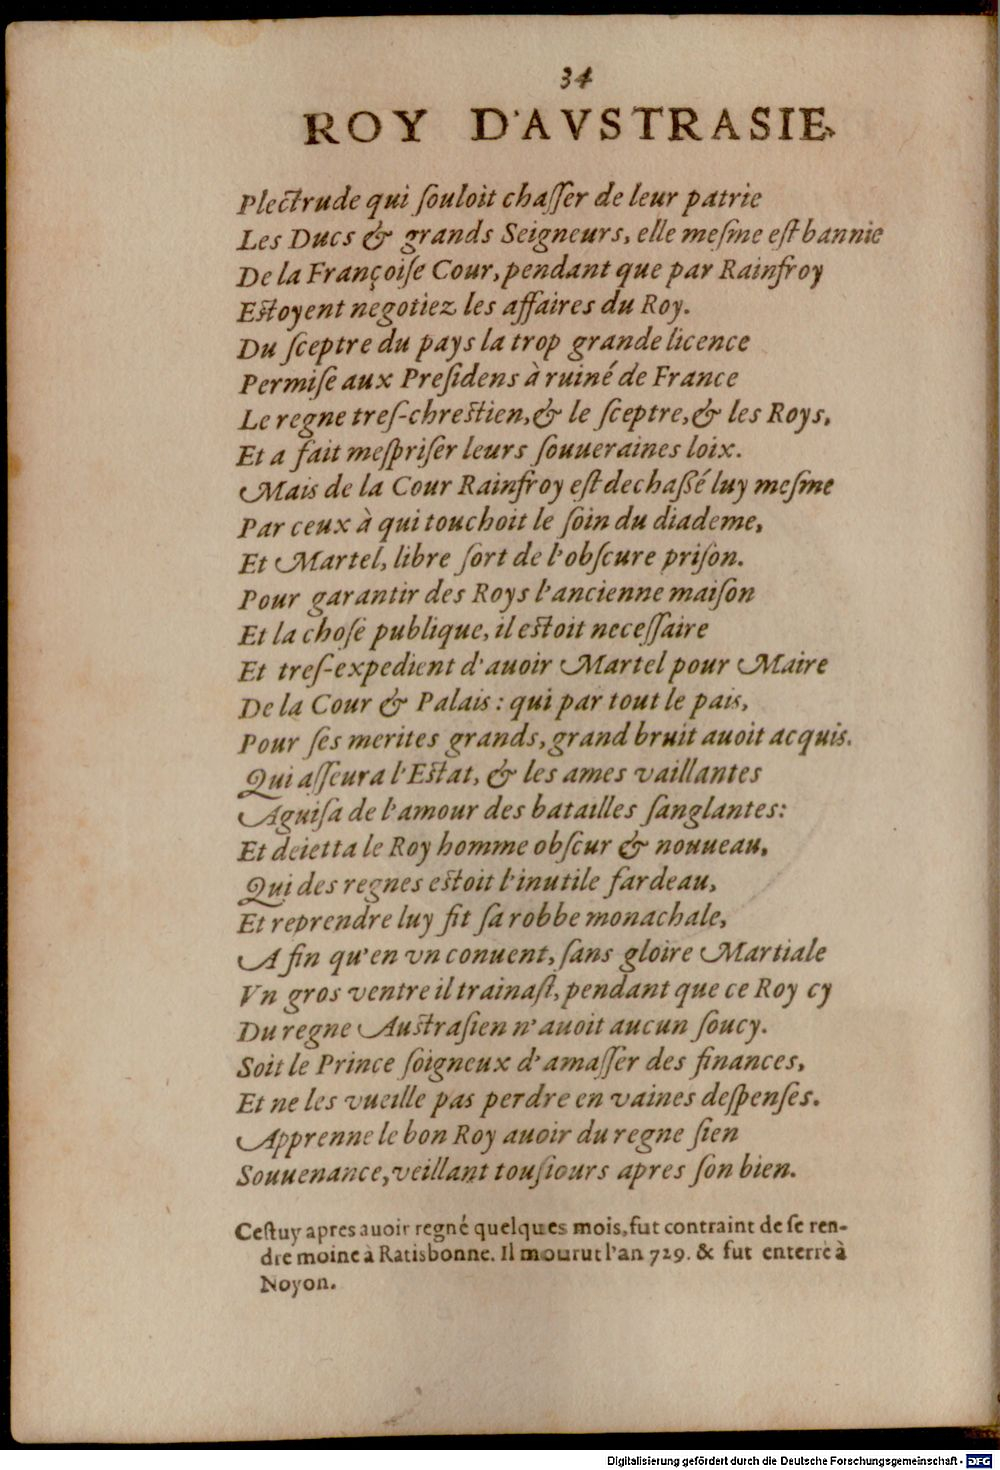 34
ROY D'AVSTRASIE
Plectrude qui ſouloit chaſſer de leur patrie
Les Ducs & grands Seigneurs, elle meſme eſt bannie
De la Françoiſe Cour, pendant que par Rainfroy
Eſtoyent negotiez les affaires du Roy.
Du ſceptre du pays la trop grande licence
Permiſe aux Preſidens à ruiné de France
Le regne treſ-chreſtien, & le ſceptre, & les Roys,
Et a fait meſpriſer leurs ſouueraines loix.
Mais de la Cour Rainfroy eſt dechaßé luy meſme
Par ceux à qui touchoit le ſoin du diademe,
Et Martel, libre ſort de l'obſcure priſon.
Pour garantir des Roys l'ancienne maiſon
Et la choſe publique, il eſtoit neceſſaire
Et treſ-expedient d'auoir Martel pour Maire
De la Cour & Palais : qui par tout le pais,
Pour ſes merites grands, grand bruit auoit acquis.
Qui aſſeura l'Eſtat, & les ames vaillantes
Aguiſa de l'amour des batailles ſanglantes:
Et deietta le Roy homme obſcur & nouueau,
Qui des regnes eſtoit l'inutile fardeau,
Et reprendre luy fit ſa robbe monachale,
A fin qu'en vn conuent, ſans gloire Martiale
Vn gros ventre il trainaſt, pendant que ce Roy cy
Du regne Auſtraſien n'auoit aucun ſoucy.
Soit le Prince ſoigneux d'amaſſer des finances,
Et ne les vueille pas perdre en vaines deſpenſes.
Apprenne le bon Roy auoir du regne ſien
Souuenance, veillant touſiours apres ſon bien.
Ceſtuy apres auoir regné quelques mois, fut contraint de ſe ren-
dre moine à Ratisbonne. Il mourut l'an 729. & fut enterré à
Noyon.
Digitalisierung gefördert durch die Deutsche Forschungsgemeinschaft - DFG